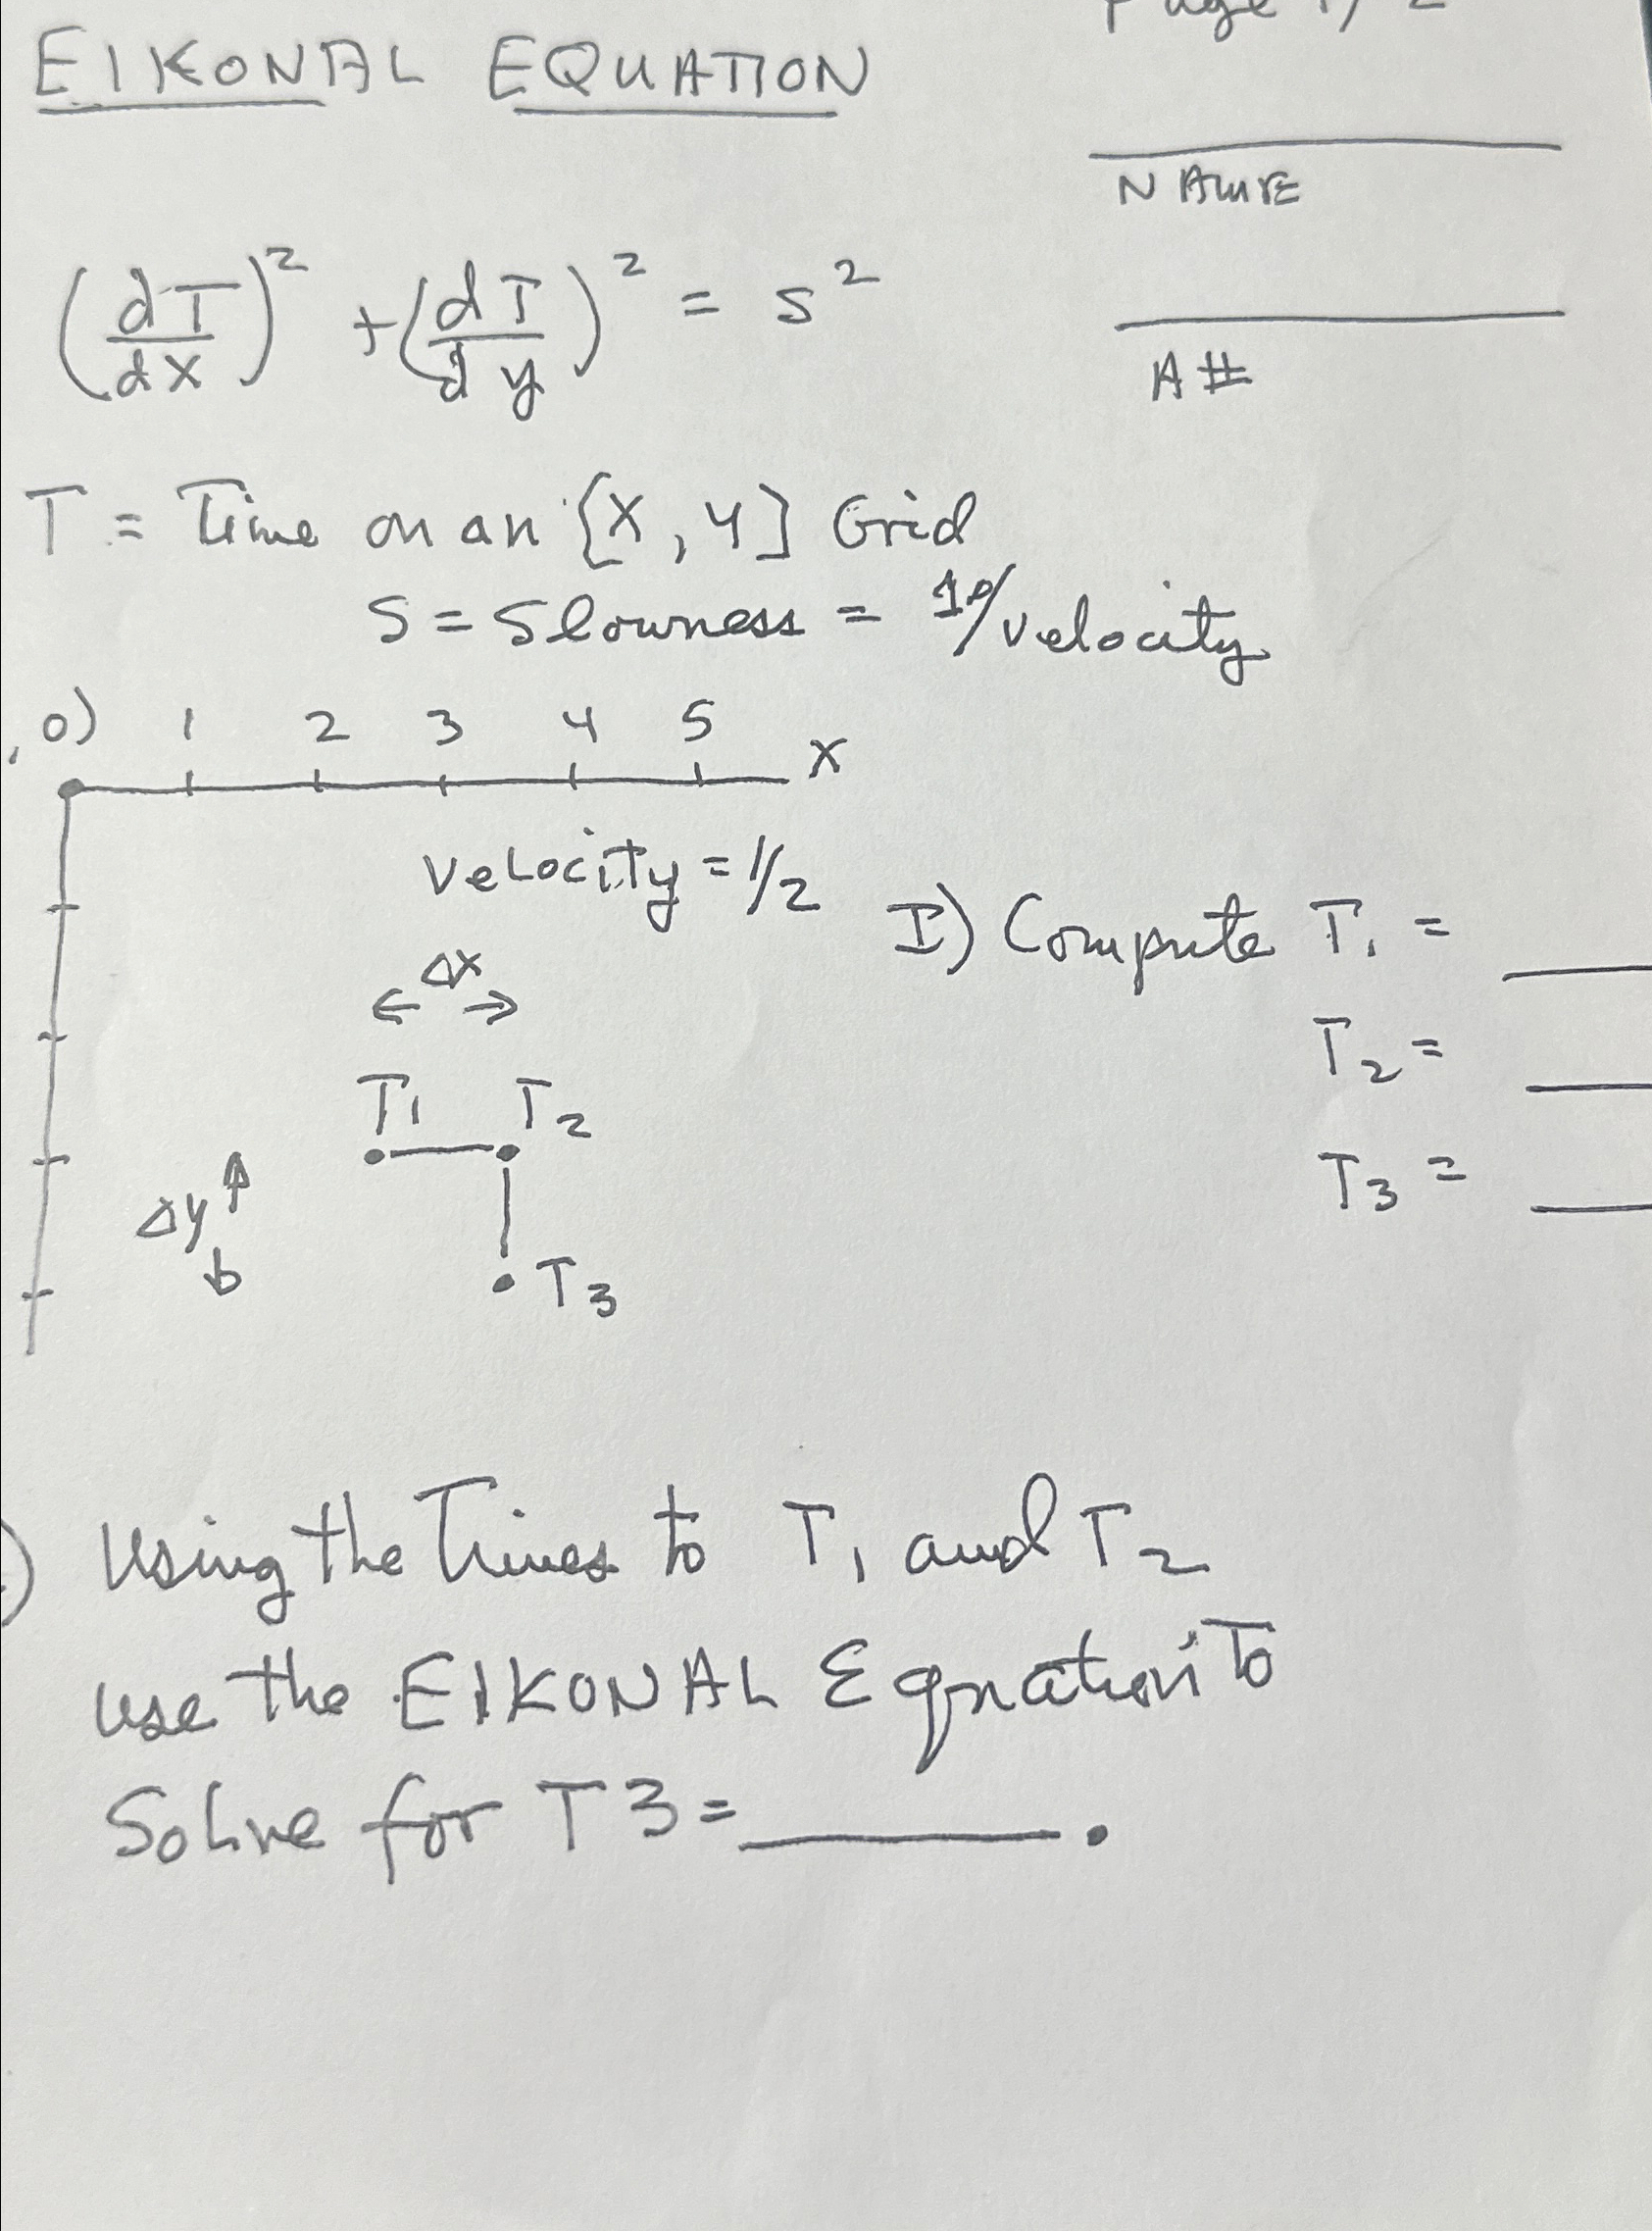 Page 1/2
EIKONAL EQUATION
NAME
(dT/dX)² + (dT/dy)² = s²
A#
T = Time on an [X, Y] Grid
S = Slowness = 1.0/velocity
, 0) 1 2 3 4 5 X
Velocity = 1/2
I) Compute T1 =
ΔX
T2 =
T1 T2
T3 =
Δy
T3
) Using the Times to T1 and T2
use the EIKONAL Equation to
Solve for T3 = .